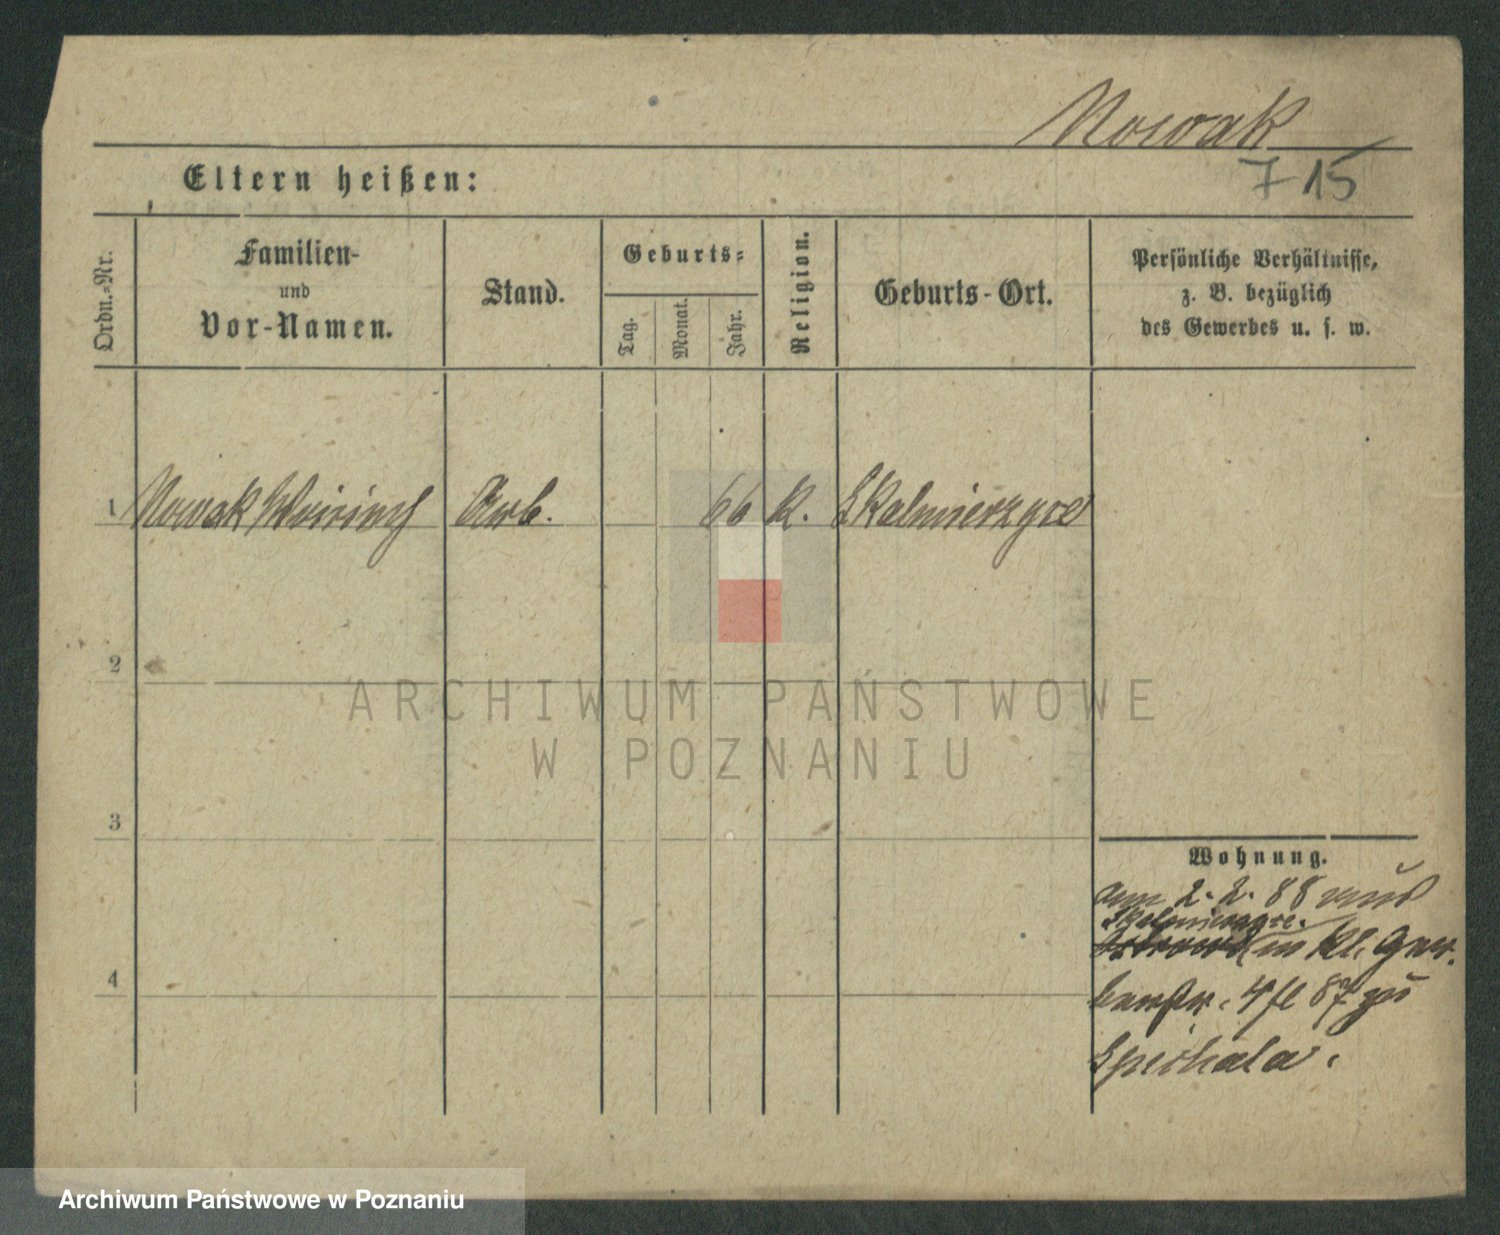 Nowak
715
Eltern heißen:
Ordn.-Nr.
Familien-
und
Vor-Namen.
Stand.
Geburts-
Tag.
Monat.
Jahr.
Religion.
Geburts-Ort.
Persönliche Verhältnisse,
z. B. bezüglich
des Gewerbes u. s. w.
1 Nowak Arb. 66 K. Skalmierzyce
2
3
4
Wohnung.
am 2.2.88 aus
Skalmierzyce.
in Kl. Ger-
berstr. 4 fl 87 zu
Spichala.
ARCHIWUM PAŃSTWOWE
W POZNANIU
Archiwum Państwowe w Poznaniu